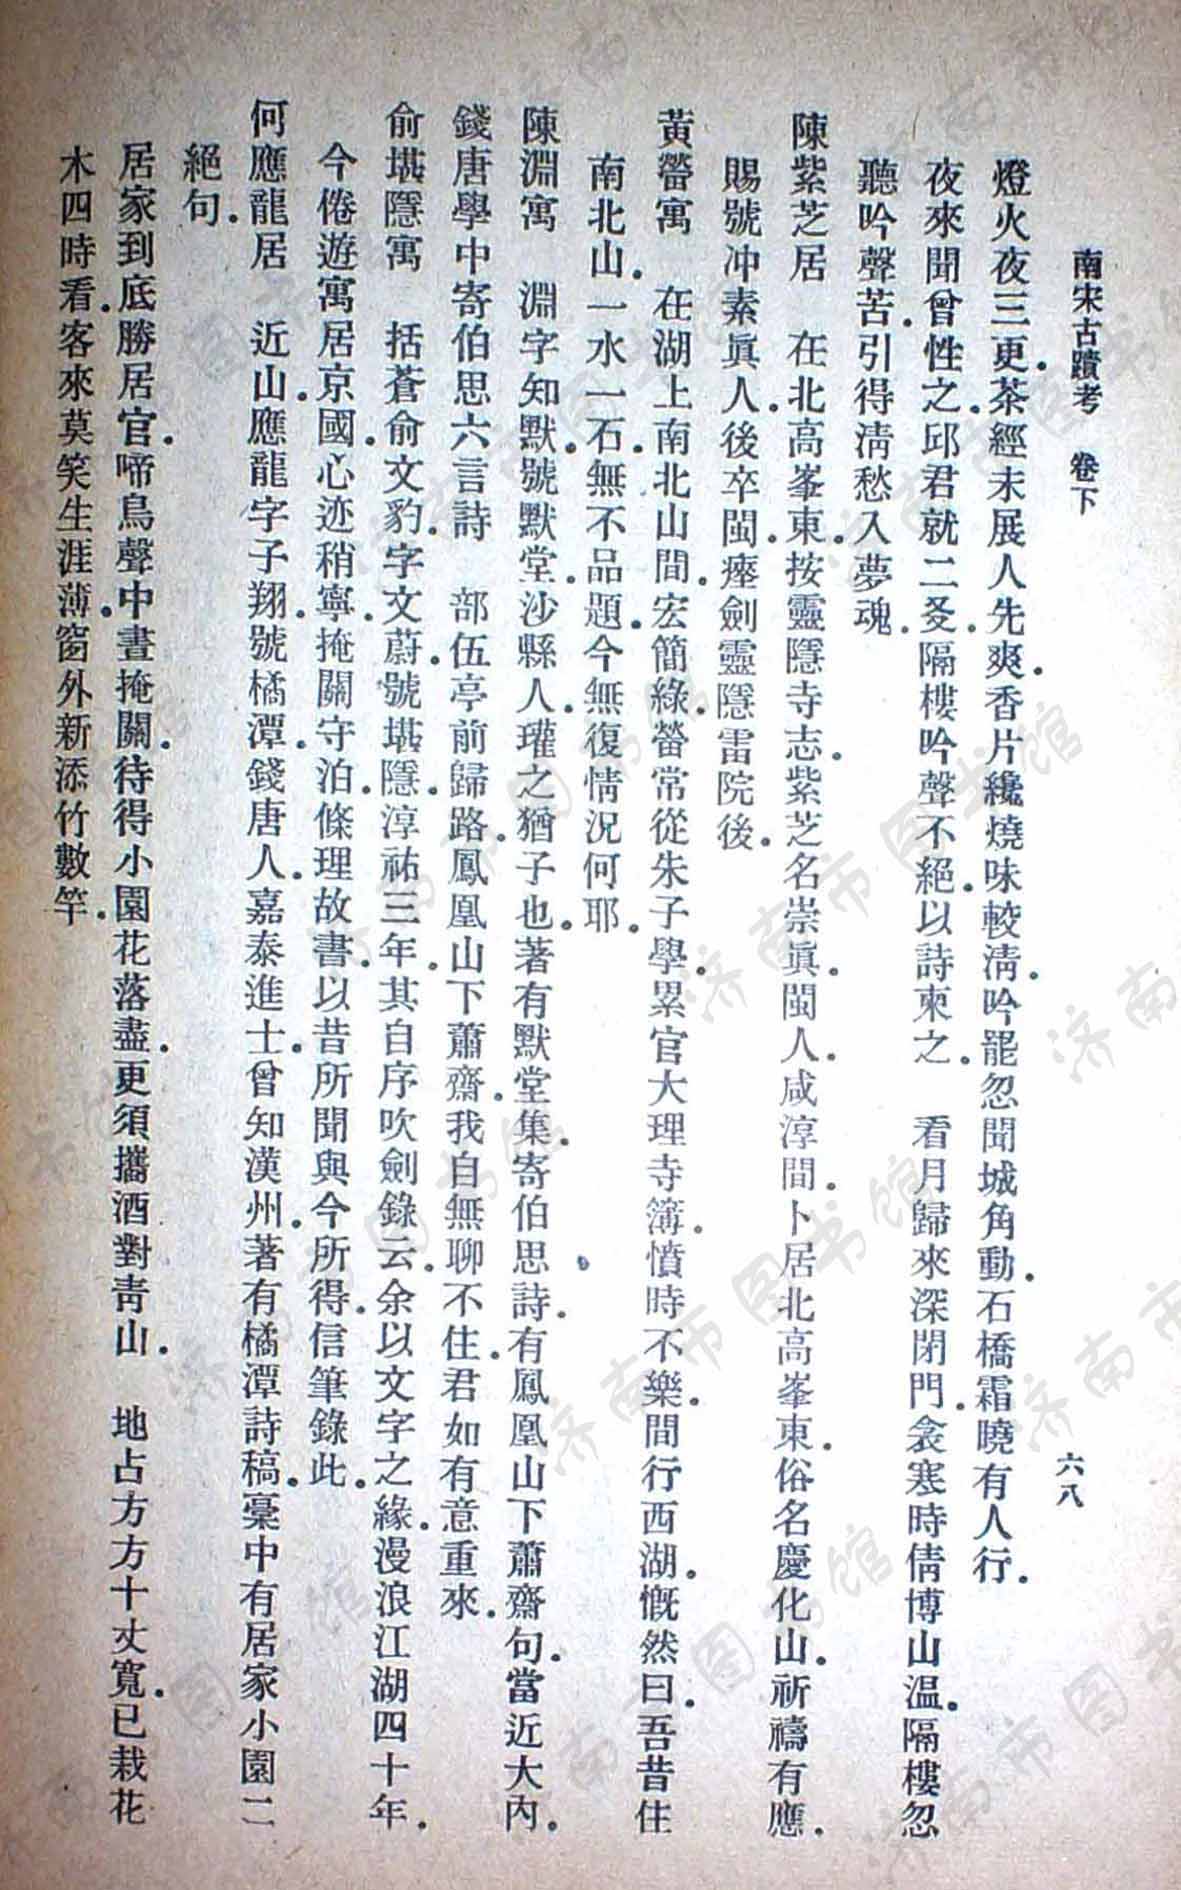 南宋古蹟考　卷下　六八
燈火夜三更。茶經未展人先爽。香片纔燒味較淸。吟罷忽聞城角動。石橋霜曉有人行。
夜來聞曾性之。邱君就二爻。隔樓吟聲不絕。以詩柬之。　看月歸來深閉門。衾寒時倩博山温。隔樓忽
聽吟聲苦。引得淸愁入夢魂。
陳紫芝居　在北高峯東。按靈隱寺志。紫芝名崇眞。閩人。咸淳間。卜居北高峯東。俗名慶化山。祈禱有應。
賜號冲素眞人。後卒閩。瘞劍靈隱雷院後。
黃罃寓　在湖上南北山間。宏簡綠。罃常從朱子學。累官大理寺簿。憤時不樂。間行西湖。慨然曰。吾昔住
南北山。一水一石。無不品題。今無復情況何耶。
陳淵寓　淵字知默。號默堂。沙縣人。瓘之猶子也。著有默堂集。寄伯思詩。有鳳凰山下蕭齋句。當近大內。
錢唐學中寄伯思六言詩　部伍亭前歸路。鳳凰山下蕭齋。我自無聊不住。君如有意重來。
俞堪隱寓　括蒼俞文豹。字文蔚。號堪隱。淳祐三年。其自序吹劍錄云。余以文字之緣。漫浪江湖四十年。
今倦遊寓居京國。心迹稍寧。掩關守泊。條理故書。以昔所聞與今所得。信筆錄此。
何應龍居　近山。應龍字子翔。號橘潭。錢唐人。嘉泰進士。曾知漢州。著有橘潭詩稿。稾中有居家小園二
絕句。
居家到底勝居官。啼鳥聲中晝掩關。待得小園花落盡。更須攜酒對靑山。　地占方方十丈寬。已栽花
木四時看。客來莫笑生涯薄。窗外新添竹數竿。